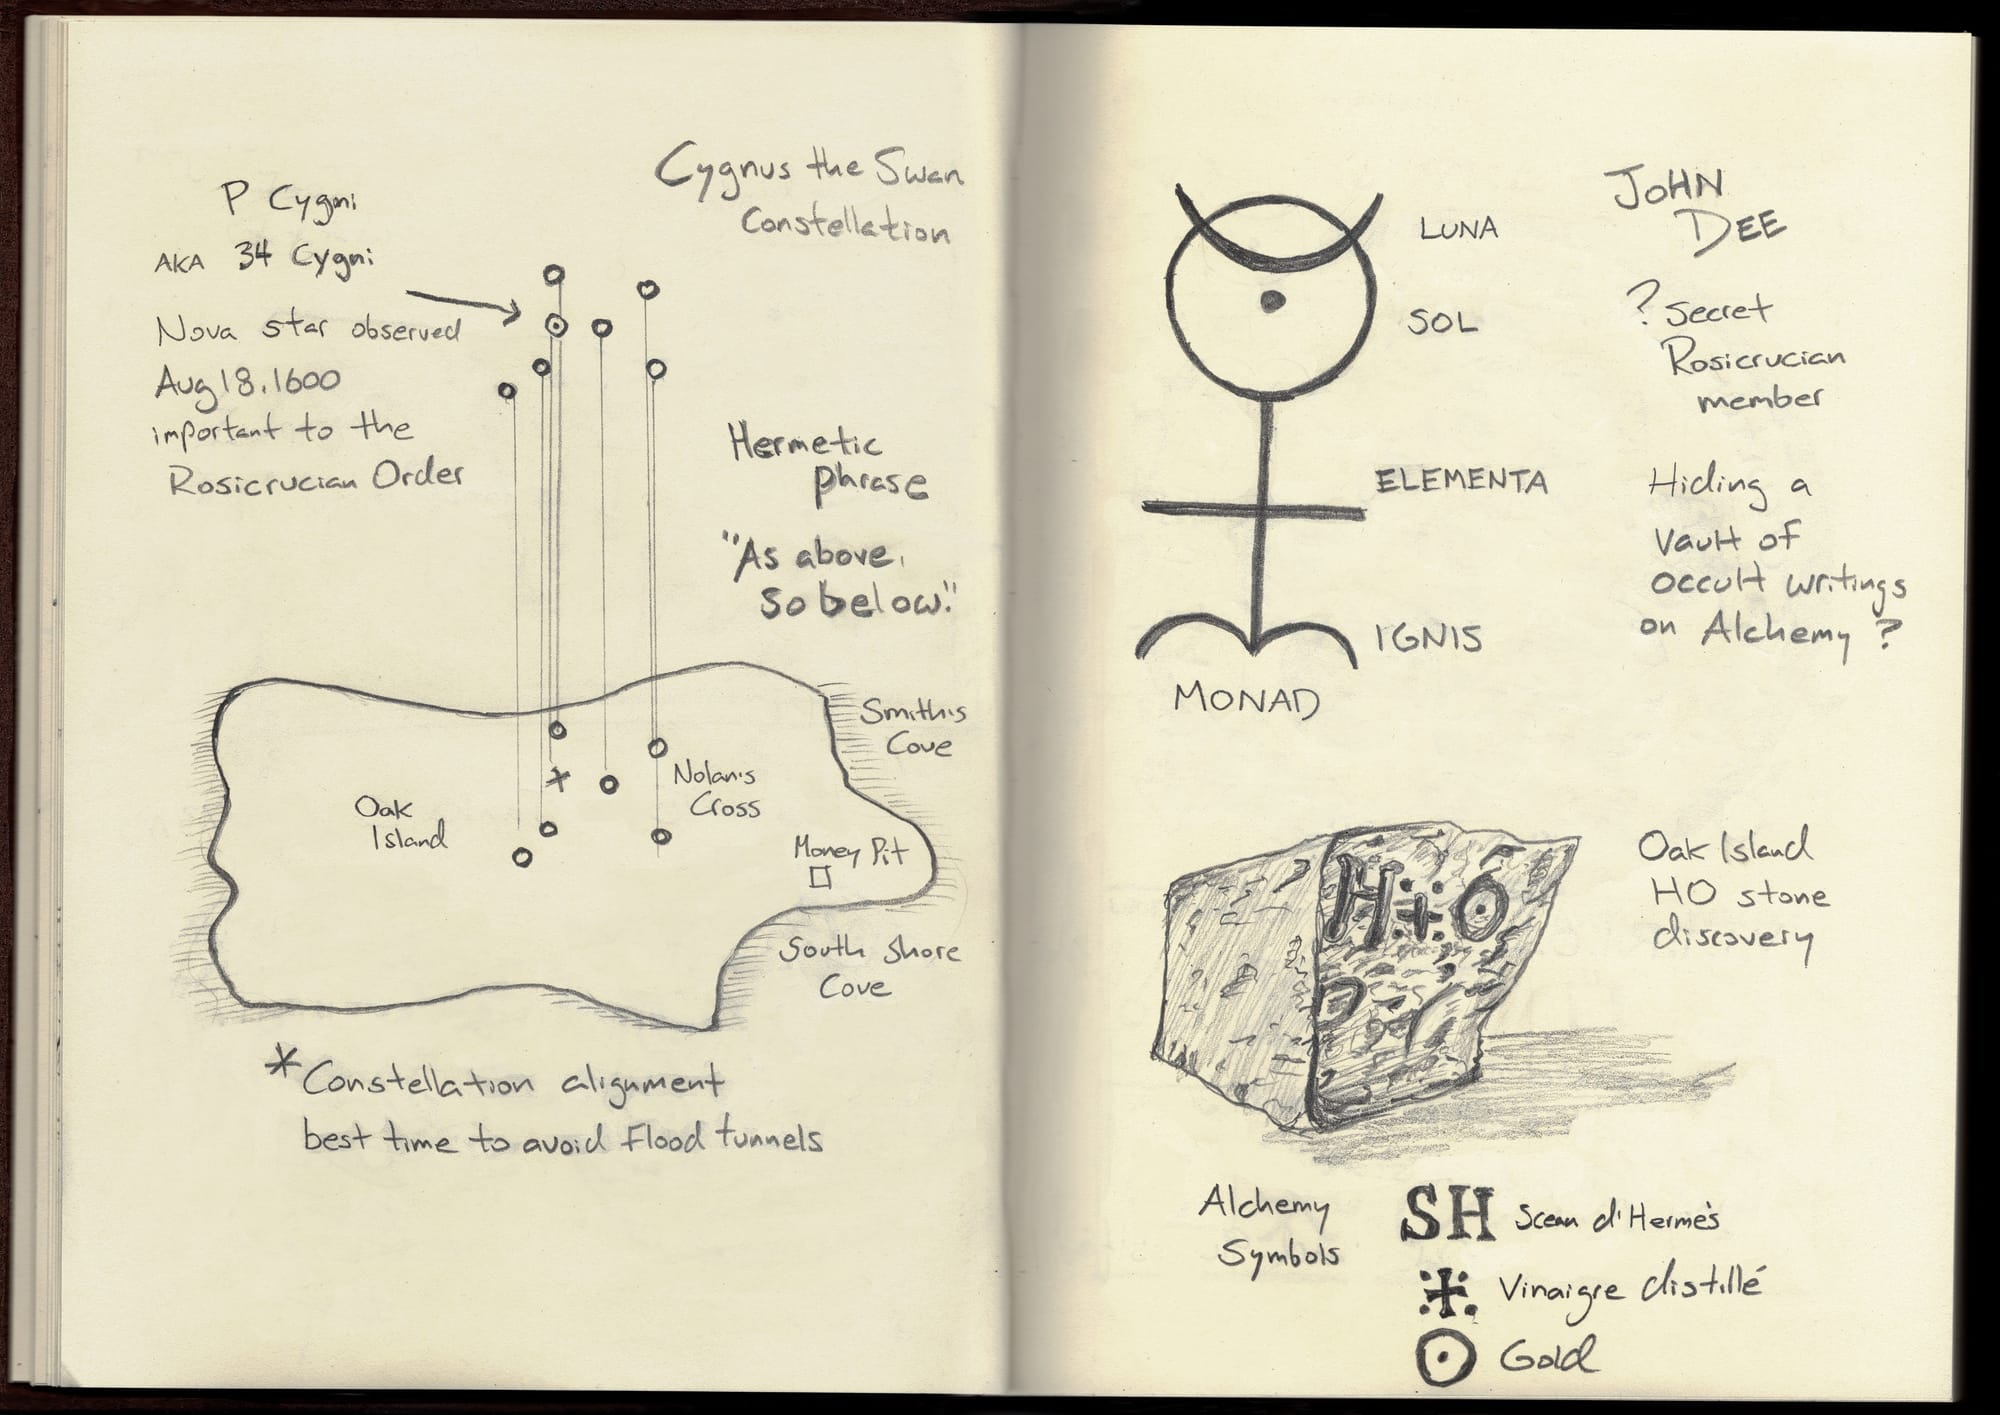 P Cygni
AKA 34 Cygni
Nova star observed
Aug 18, 1600
important to the
Rosicrucian Order
Cygnus the Swan
Constellation
Hermetic
phrase
"As above,
so below."
Smith's
Cove
Nolan's
Cross
Oak
Island
Money Pit
South Shore
Cove
* Constellation alignment
best time to avoid flood tunnels
LUNA
SOL
ELEMENTA
IGNIS
MONAD
JOHN
DEE
? Secret
Rosicrucian
member
Hiding a
Vault of
occult writings
on Alchemy ?
H O
Oak Island
HO stone
discovery
Alchemy
Symbols
SH Sceau d'Hermès
Vinaigre distillé
Gold